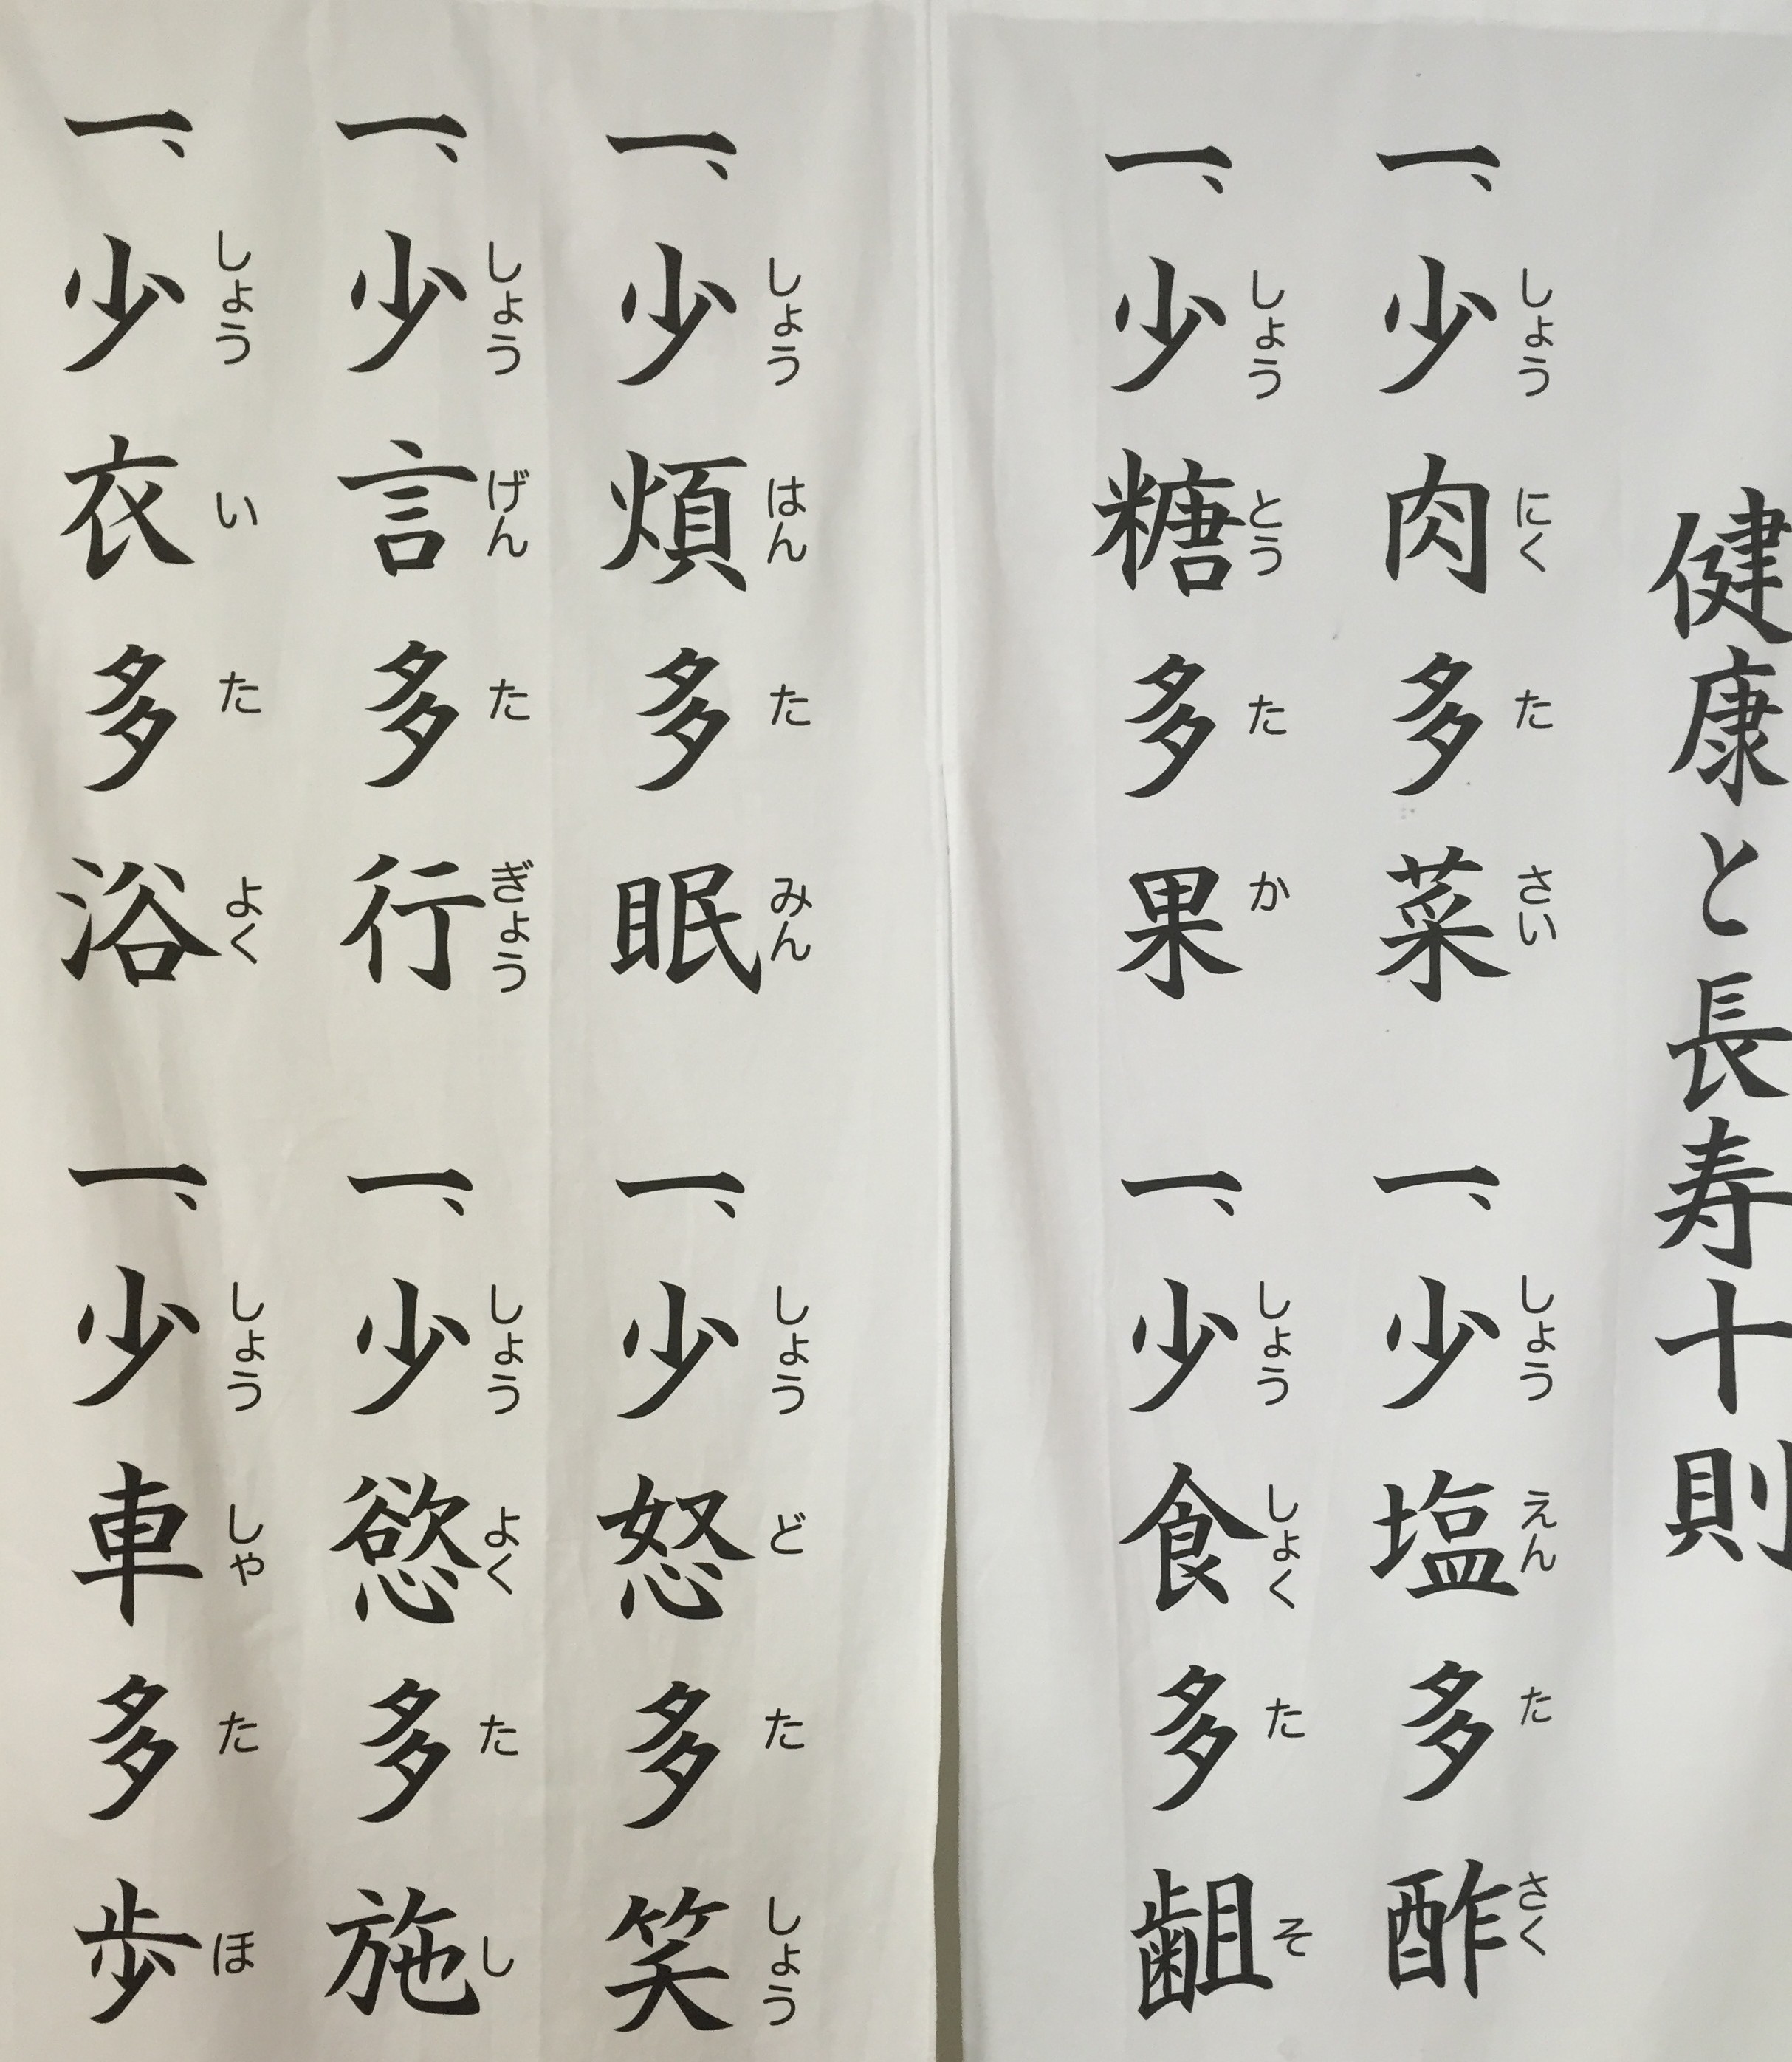 健康と長寿十則
一、少肉多菜
一、少塩多酢
一、少糖多果
一、少食多齟
一、少煩多眠
一、少怒多笑
一、少言多行
一、少慾多施
一、少衣多浴
一、少車多歩
しょう にく た さい
しょう えん た さく
しょう とう た か
しょう しょく た そ
しょう はん た みん
しょう ど た しょう
しょう げん た ぎょう
しょう よく た し
しょう い た よく
しょう しゃ た ほ